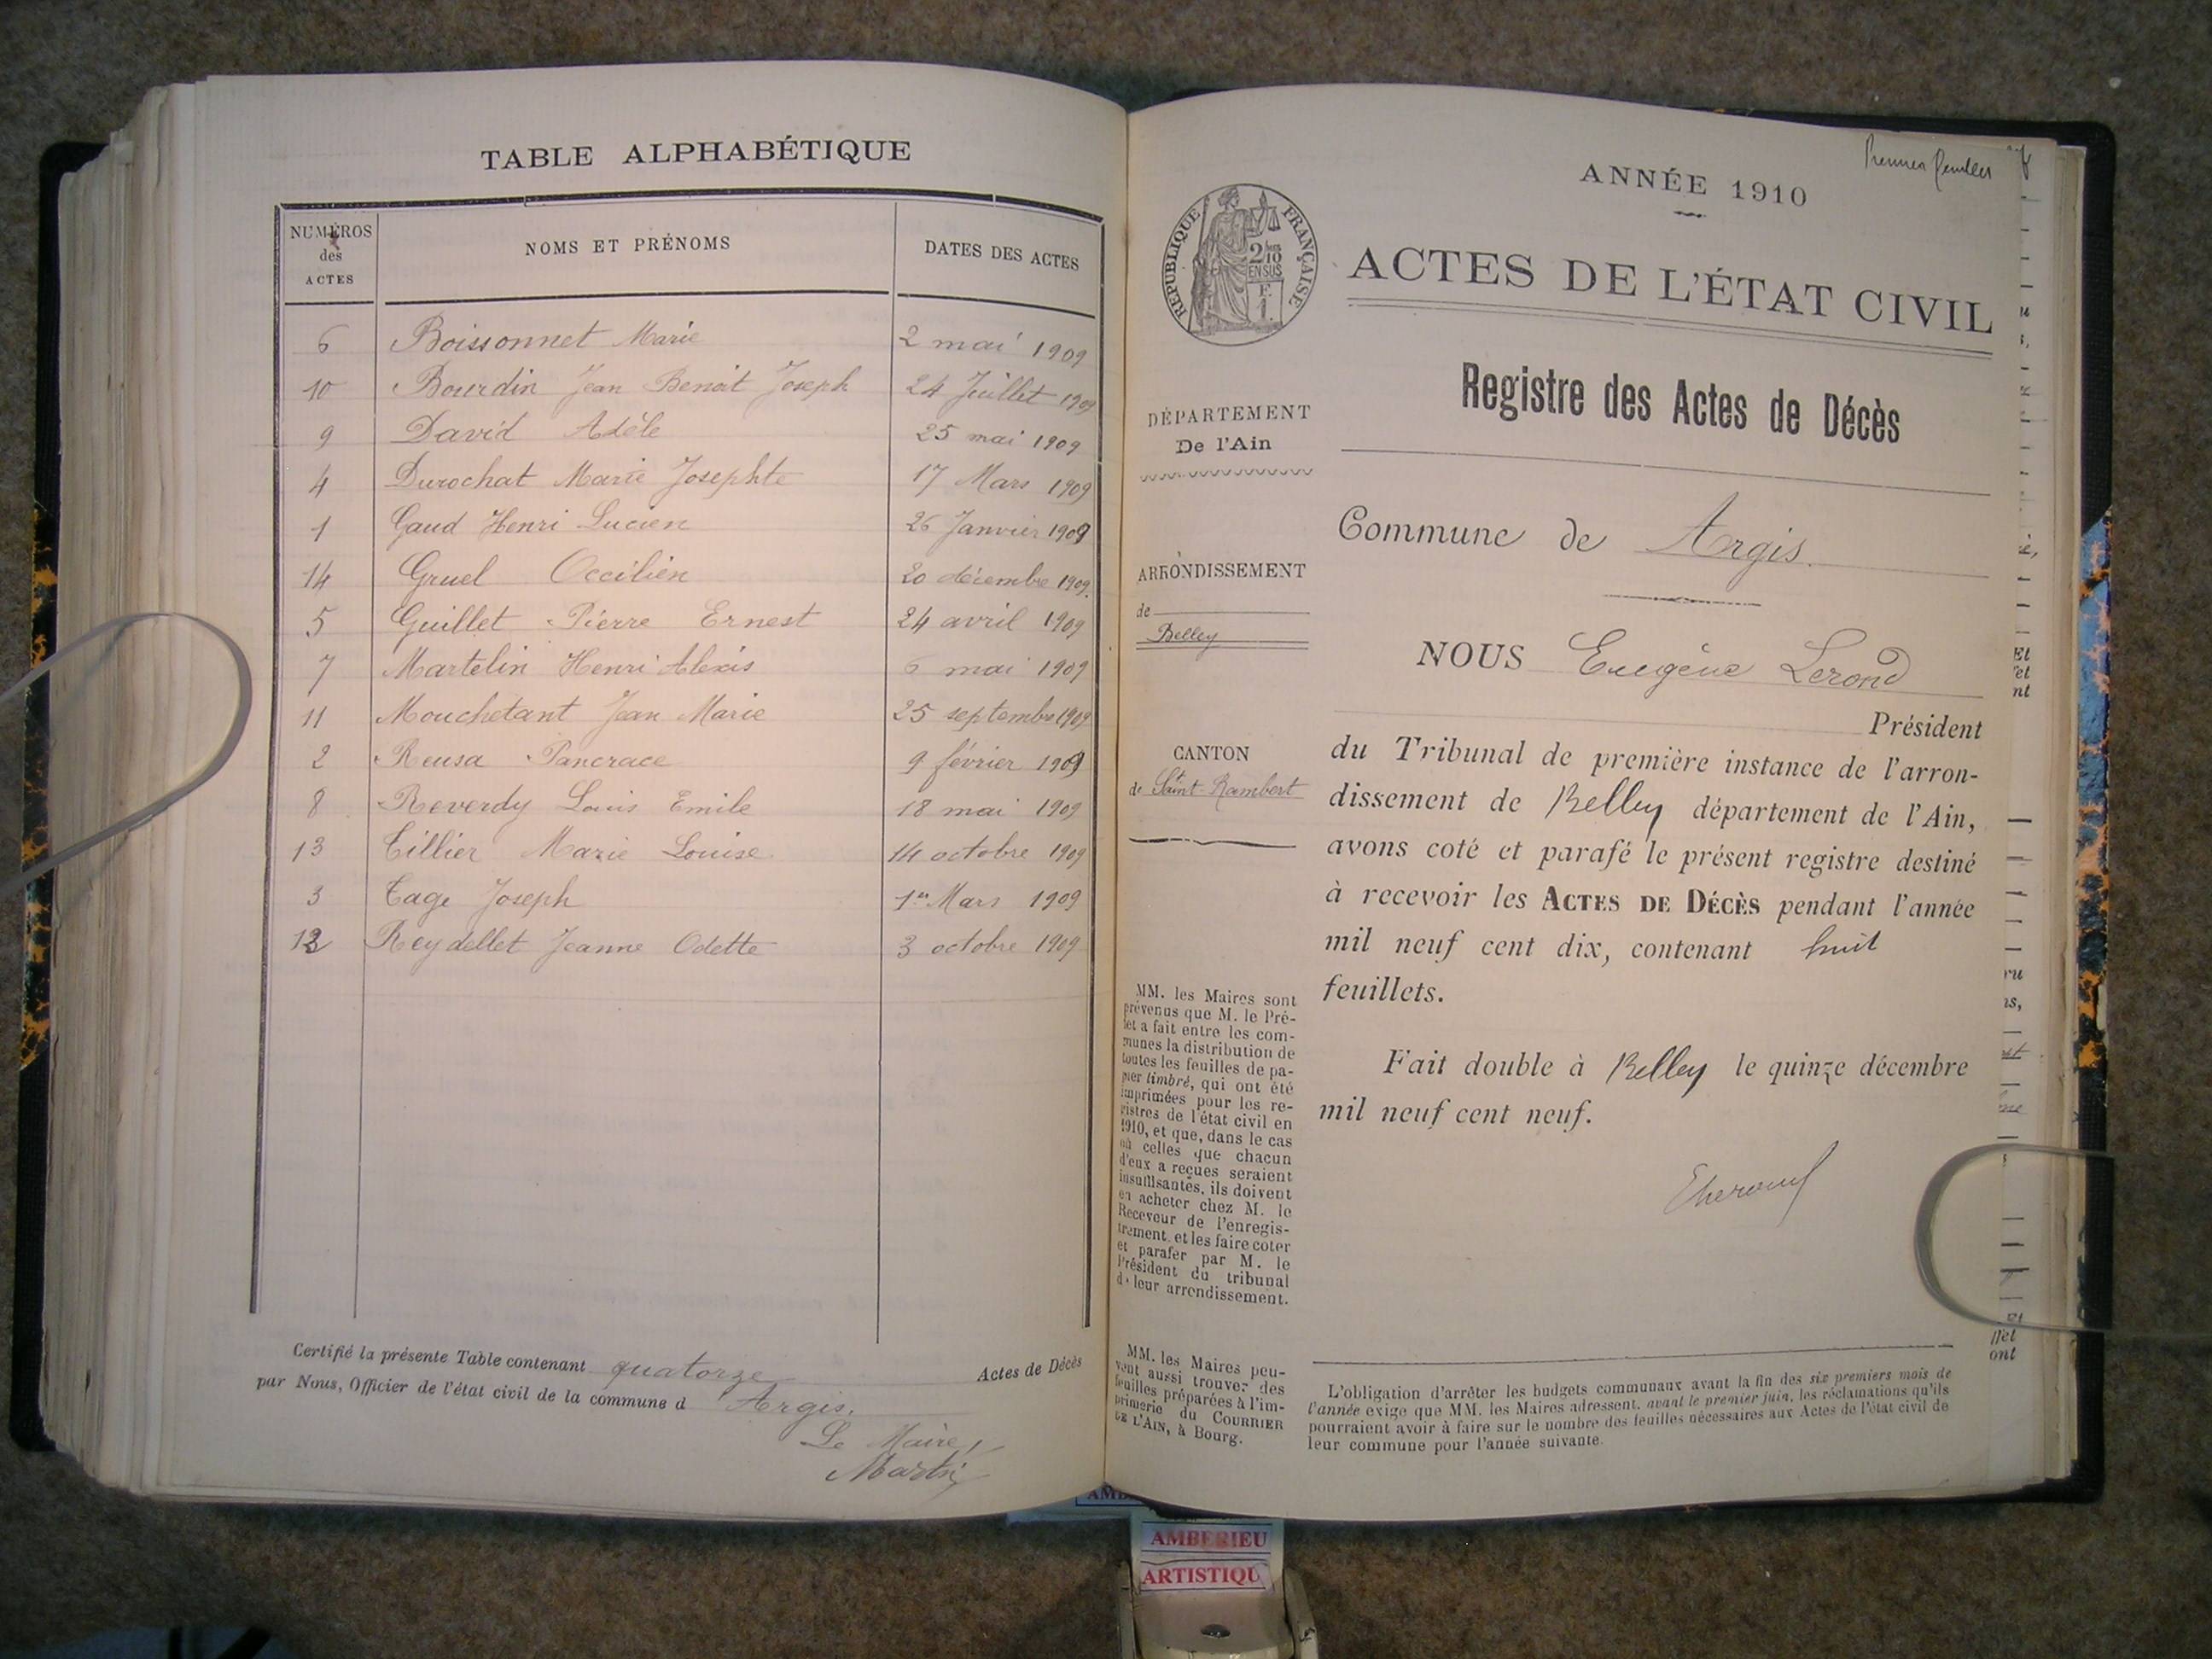 TABLE ALPHABÉTIQUE
NUMÉROS des ACTES NOMS ET PRÉNOMS DATES DES ACTES
6 Boissonnet Marie 2 mai 1909
10 Bourdin Jean Benoit Joseph 24 Juillet 1909
9 David Adèle 25 mai 1909
4 Durochat Marie Josephte 17 Mars 1909
1 Gaud Henri Lucien 26 Janvier 1909
14 Gruel Occilien 20 décembre 1909.
5 Guillet Pierre Ernest 24 avril 1909
7 Martelin Henri Alexis 6 mai 1909
11 Mouchetant Jean Marie 25 septembre 1909
2 Reusa Pancrace 9 février 1909
8 Reverdy Louis Emile 18 mai 1909
13 Tillier Marie Louise 14 octobre 1909
3 Tage Joseph 1er Mars 1909
12 Reydellet Jeanne Odette 3 octobre 1909
Certifié la présente Table contenant quatorze Actes de Décès
par Nous, Officier de l'état civil de la commune d Argis.
Le Maire,
Martin
Premier feuillet
ANNÉE 1910
RÉPUBLIQUE FRANÇAISE
2/10
EN SUS
F.
1.
ACTES DE L'ÉTAT CIVIL
Registre des Actes de Décès
DÉPARTEMENT
De l'Ain
ARRONDISSEMENT
de
Belley
CANTON
de Saint Rambert
Commune de Argis.
NOUS Eugène Lerond
Président
du Tribunal de première instance de l'arron-
dissement de Belley département de l'Ain,
avons coté et parafé le présent registre destiné
à recevoir les ACTES DE DÉCÈS pendant l'année
mil neuf cent dix, contenant huit
feuillets.
Fait double à Belley le quinze décembre
mil neuf cent neuf.
MM. les Maires sont
prévenus que M. le Pré-
fet a fait entre les com-
munes la distribution de
toutes les feuilles de pa-
pier timbré, qui ont été
imprimées pour les re-
gistres de l'état civil en
1910, et que, dans le cas
où celles que chacun
d'eux a reçues seraient
insuffisantes, ils doivent
en acheter chez M. le
Receveur de l'enregis-
trement, et les faire coter
et parafer par M. le
Président du tribunal
de leur arrondissement.
MM. les Maires peu-
vent aussi trouver des
feuilles préparées à l'im-
primerie du COURRIER
DE L'AIN, à Bourg.
L'obligation d'arrêter les budgets communaux avant la fin des six premiers mois de
l'année exige que MM. les Maires adressent, avant le premier juin, les réclamations qu'ils
pourraient avoir à faire sur le nombre des feuilles nécessaires aux Actes de l'état civil de
leur commune pour l'année suivante.
AMBERIEU
ARTISTIQU